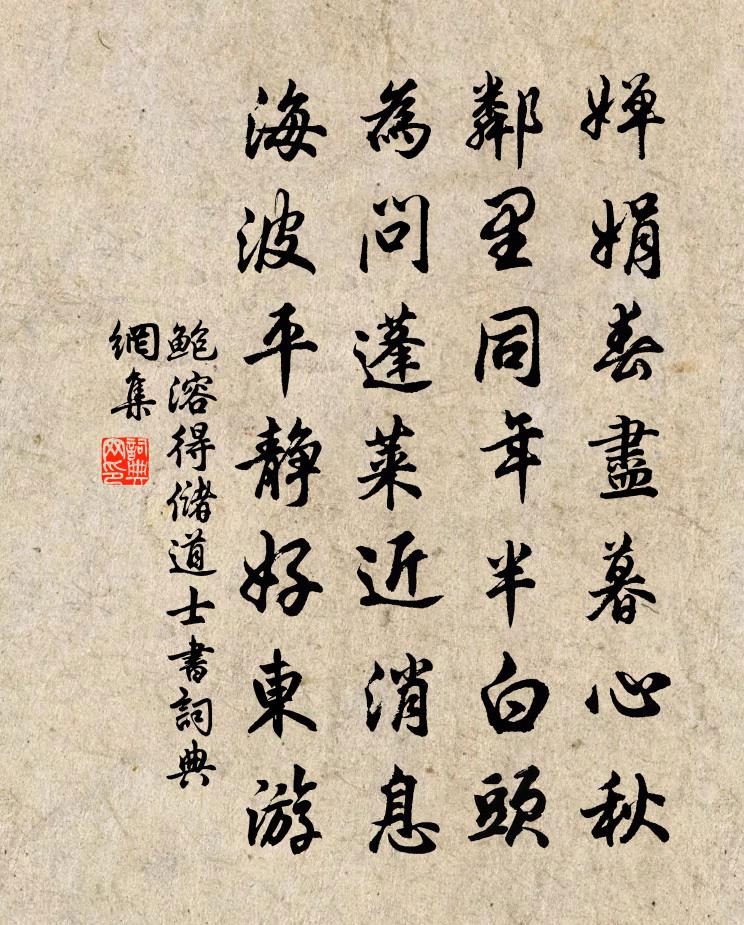 嬋娟春盡暮心秋
鄰里同年半白頭
為問蓬萊近消息
海波平靜好東游
鮑溶得儲道士書詞典
網集
詞典網印